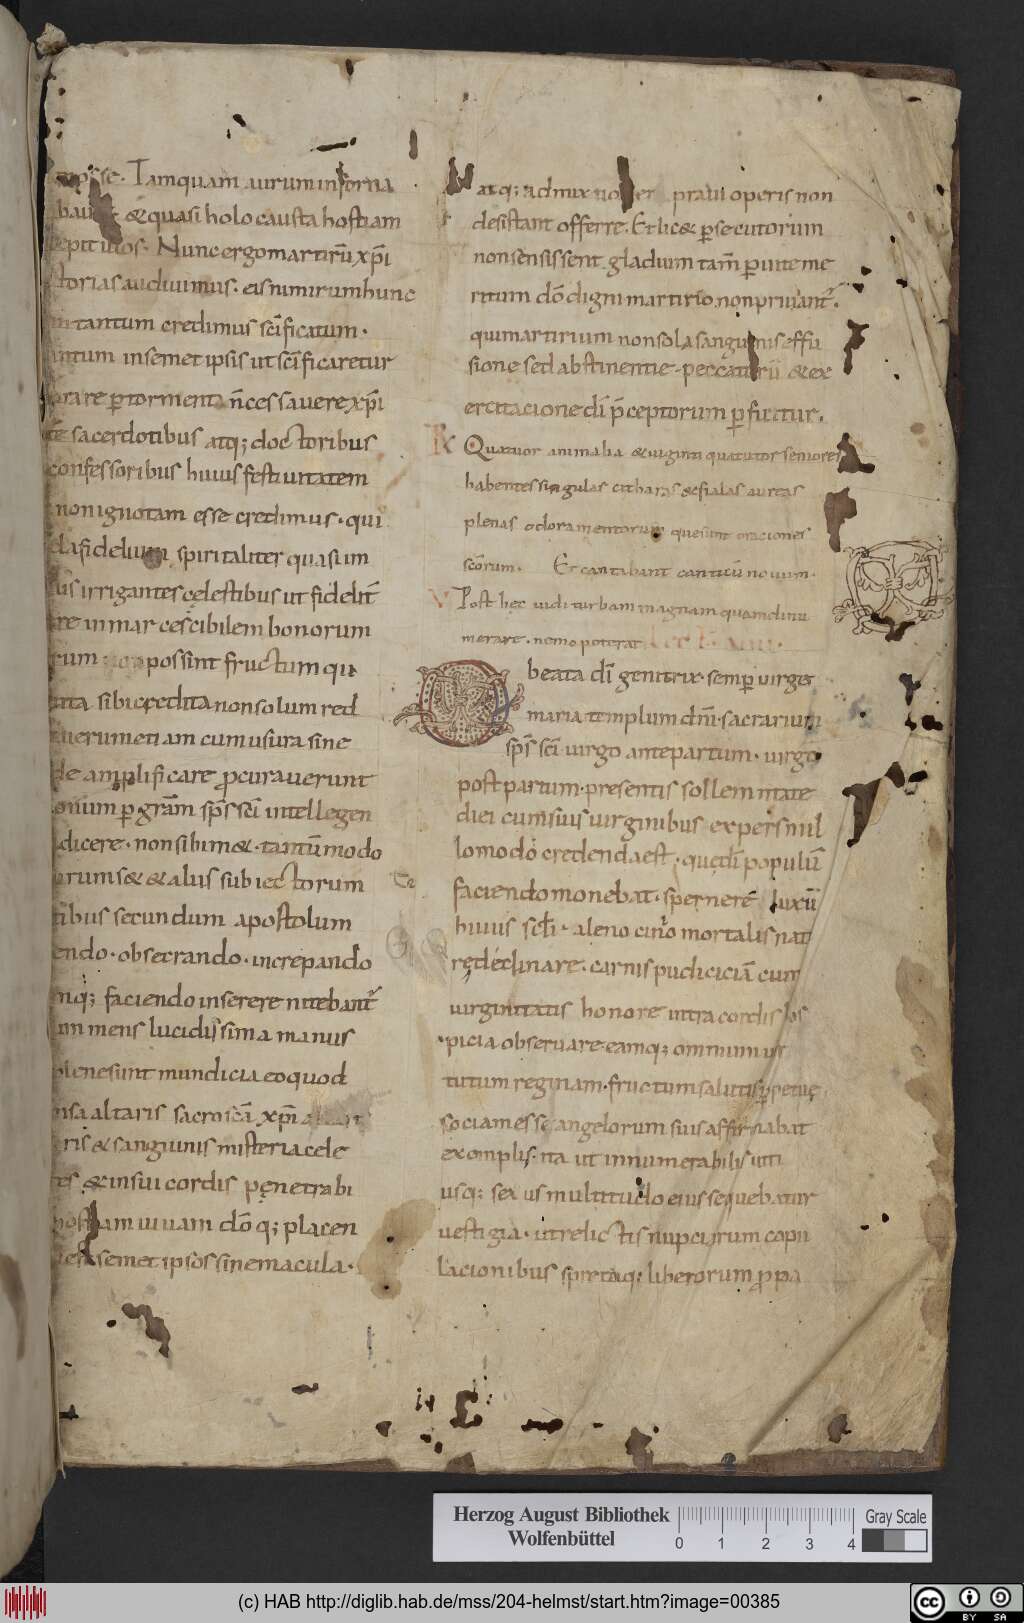 Tamquam aurum in forna
& quasi holocausta hostiam
Nunc ergo martirū xp̄i
torias audiuimus. eis nimirum hunc
tantum credimus sc̄ificatum.
insemet ipsis ut sc̄ificaretur
sacerdotibus atq; doctoribus
confessoribus huius festiuitatem
non ignotam esse credimus. qui
spiritaliter quasi im
irrigantes cęlestibus ut fidelit̄
in marcescibilem bonorum
possint fructum qu
sibi credita non solum red
uerum etiam cum usura sine
amplificare ꝓcurauerunt
gr̄am sp̄s sc̄i intellegen
dicere. non sibimet. tantūmodo
& alus subiectorum
secundum apostolum
endo. obsecrando. increpando
faciendo inserere nitebant̄
mens lucidissima manus
plene sunt mundicia eo quod
altaris sacrosc̄a xp̄i
& sanguinis misteria cele
& in sui cordis pęnetrabi
uiuam dō q; placen
semet ipsos sine macula.
atq; admixtio praui operis non
desistant offerre. Et lic& ꝑsecutorum
non sensissent gladium tam̄ ꝑ uite me
ritum dō digni martirio non priuant̄.
qui martirium non sola sanguinis effu
sione sed abstinentie peccatorū & ex
ercitacione dī p̄ceptorum ꝑficitur.
R Quatuor animalia & uiginti quatuor seniores
habentes singulas citharas & fialas aureas
plenas odoramentorum que sunt oraciones
sc̄orum. Et cantabant canticū nouum.
V Post hęc uidi turbam magnam quam dinu
merare. nemo poterat
O beata dī genitrix. semꝑ uirgo
maria templum dn̄i. sacrarium
sp̄s sc̄i uirgo ante partum. uirgo
post partum. presentis sollemnitate
diei cum suis uirginibus expers nul
lomodo credenda est. quę dī populū
faciendo monebat. spernere luxū
huius scl̄i. aleno mortalis nat
rę declinare. carnis pudiciciā cum
uirginitatis honore intra cordis os
picia obseruare eamq; omnium uir
tutum reginam. fructum salutis ꝑpetuę
sociam esse angelorum suis affirmabat
exemplis. ita ut innumerabilis utri
usq; sexus multitudo eius sequebatur
uestigia. ut relictis nupciarum copu
lacionibus spretaq; liberorum ꝓpa
Herzog August Bibliothek
Wolfenbüttel
0 1 2 3 4
Gray Scale
(c) HAB http://diglib.hab.de/mss/204-helmst/start.htm?image=00385
cc BY SA